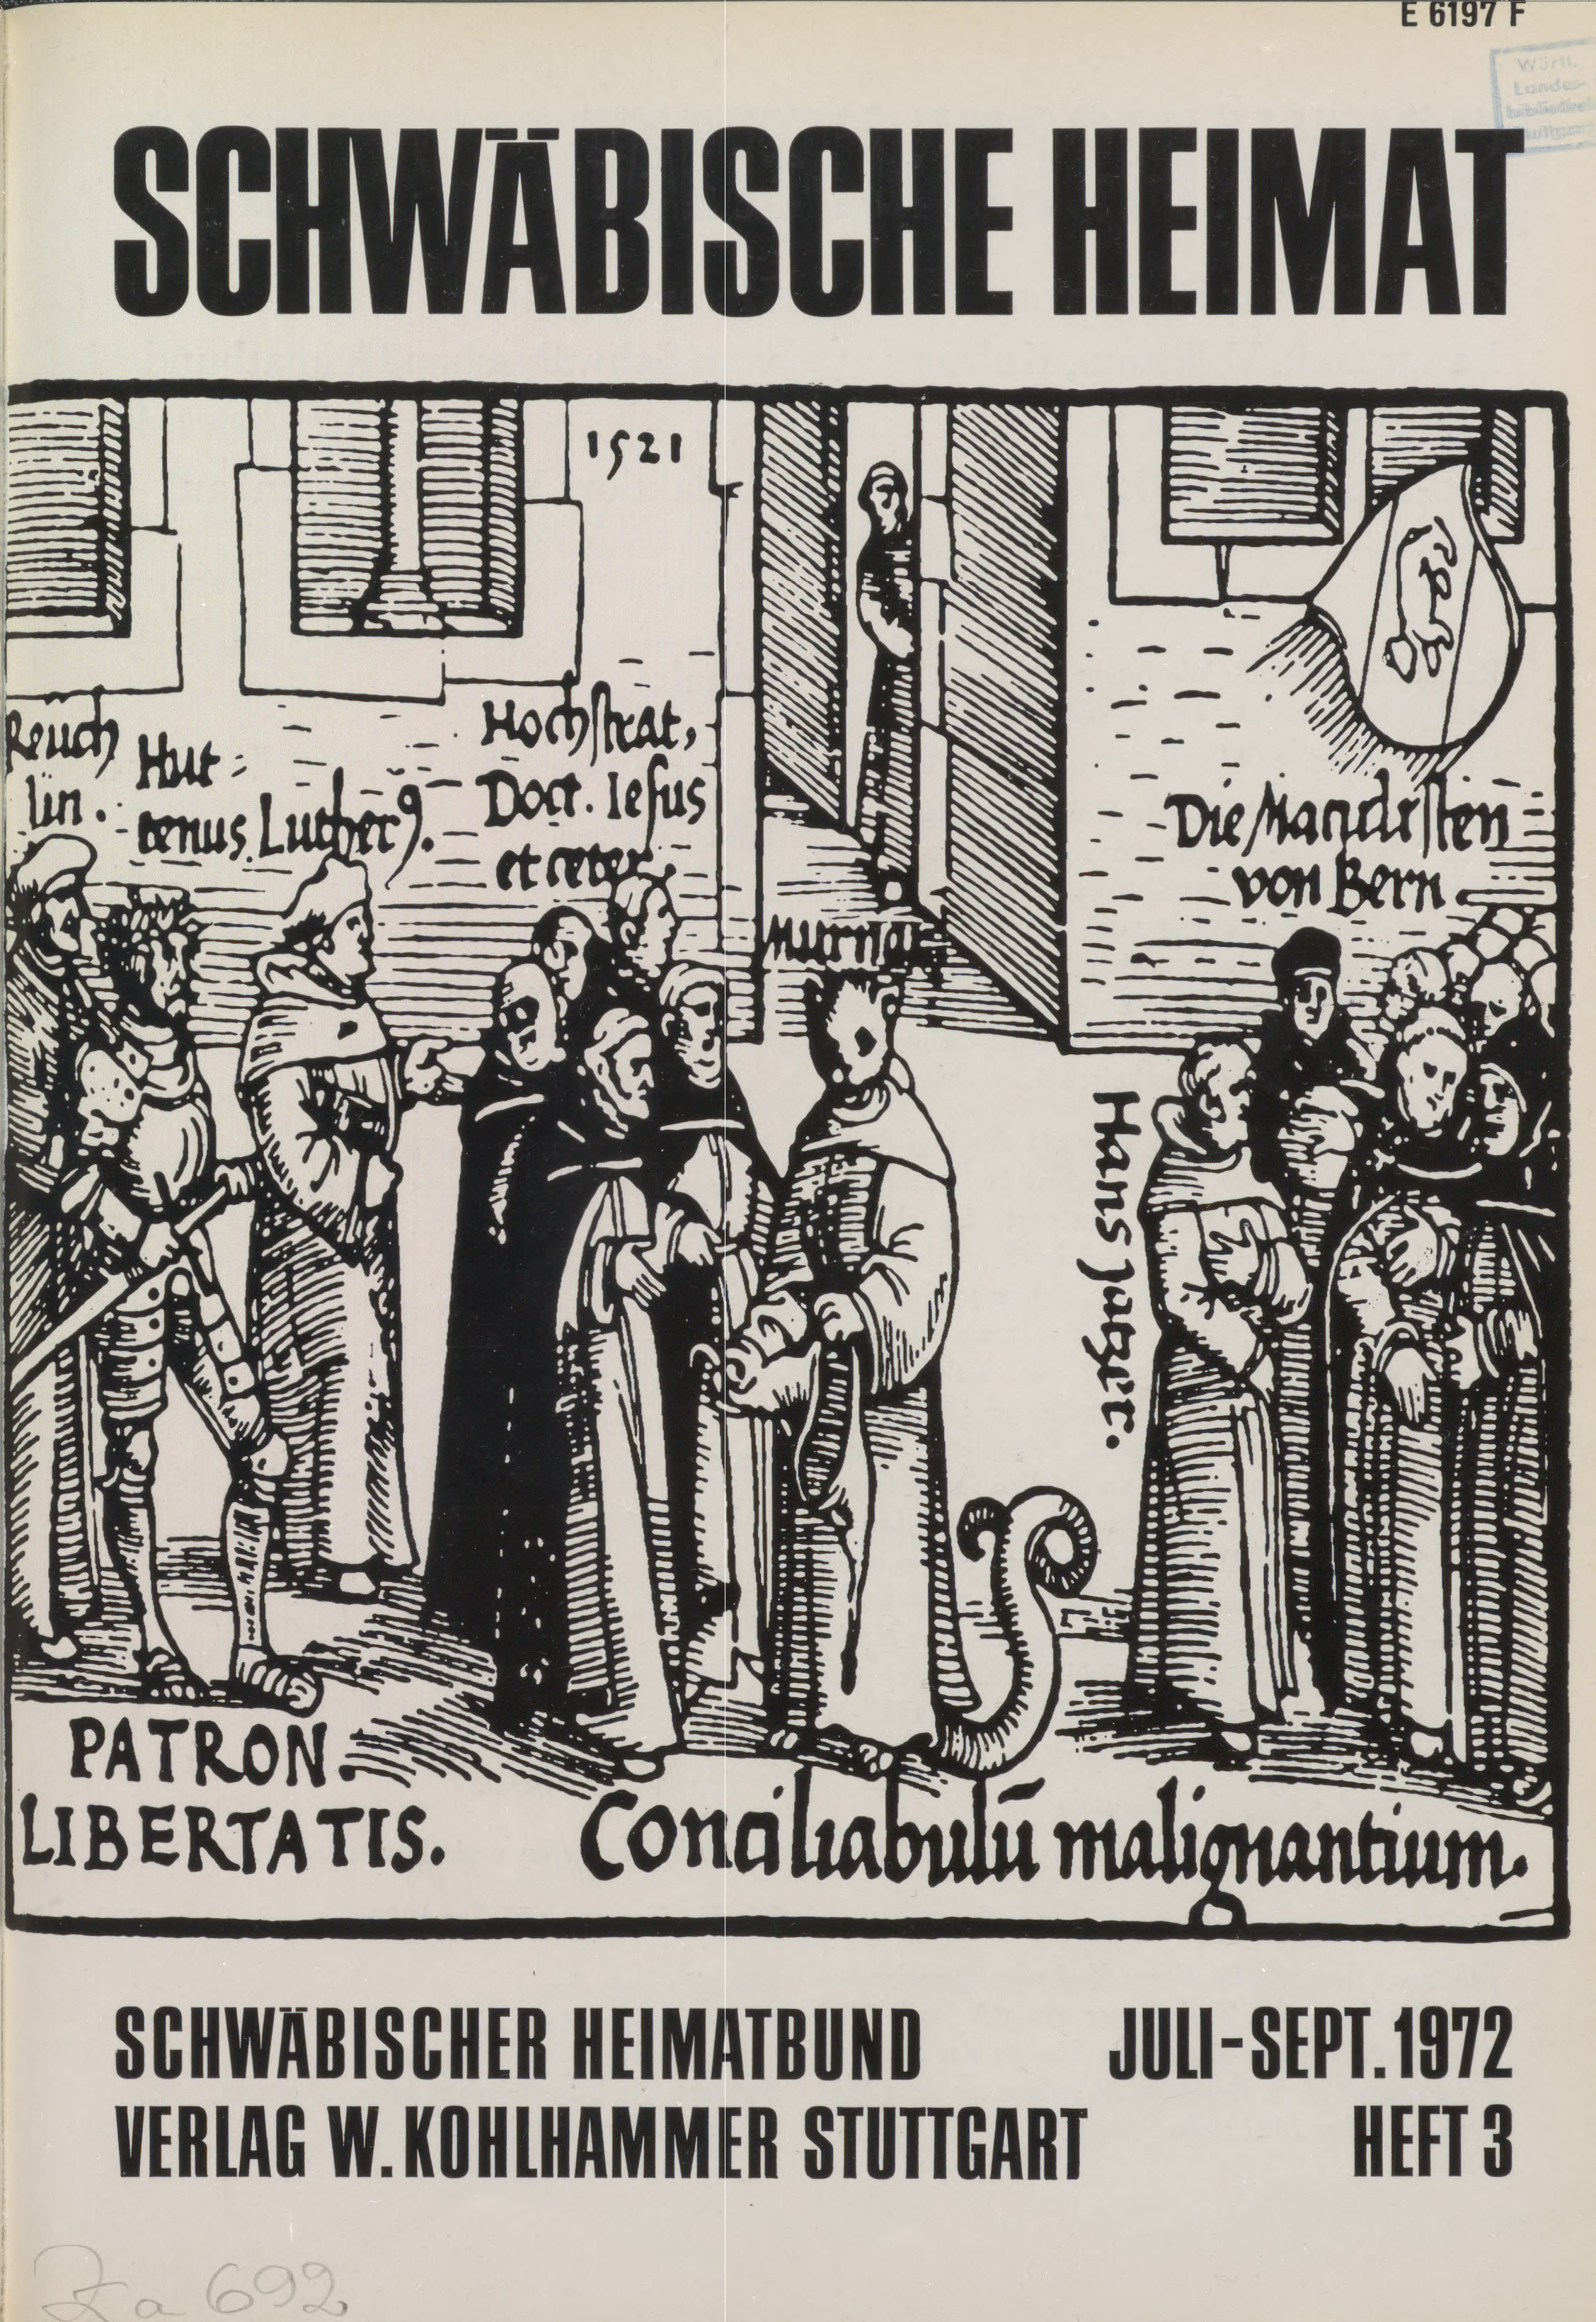 E 6197 F
Württ.
Landes-
SCHWÄBISCHE HEIMAT
1521
Reuch
lin.
Hut
tenus. Luther9.
Hochstrat,
Doct. Iesus
et ceter.
Murnar
Die
von Bern
Hans Jatzer.
PATRON.
LIBERTATIS.
Conciliabulū malignantium.
SCHWÄBISCHER HEIMATBUND
JULI-SEPT. 1972
VERLAG W. KOHLHAMMER STUTTGART
HEFT 3
Za 692